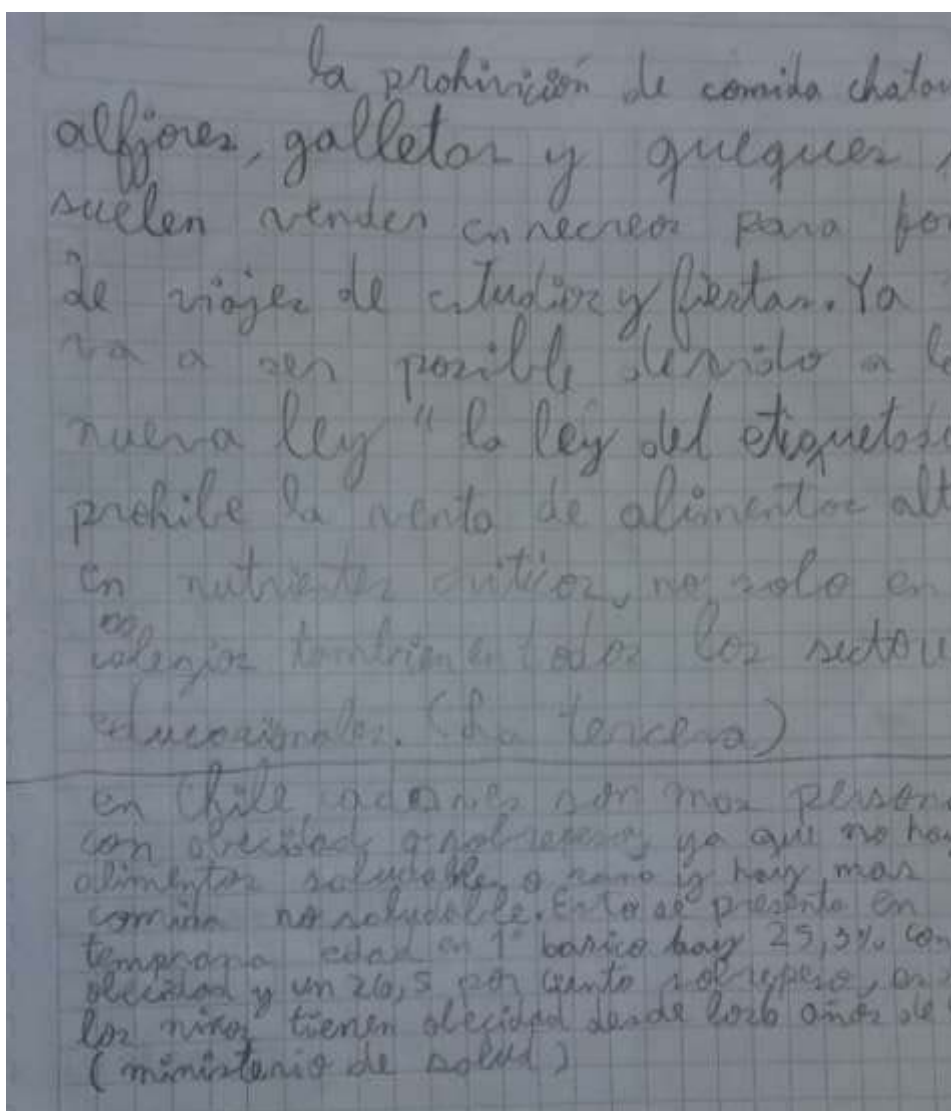 la prohivición de comida chata
alfjores, galletas y queques,
suelen vender en recreos para
de viajes de estudios y fiestas. Ya
va a ser posible devido a l
nueva ley " la ley del etiqueta
prohibe la venta de alimentos alt
en nutrientes criticos, no solo en
os
colegios tambien en todos los secto
educacionales. (La tercera)
en Chile, cada mes son mas person
con obecidad o sobrepeso, ya que no hay
alimentos saludables o sano y hay mas
comida no saludable. Esto se presenta en
temprana edad en 1° basico hay 25,3% co
obecidad y un 26,5 por ciento sobrepeso,
los niños tienen obecidad desde los 6 años de
(ministerio de salud)